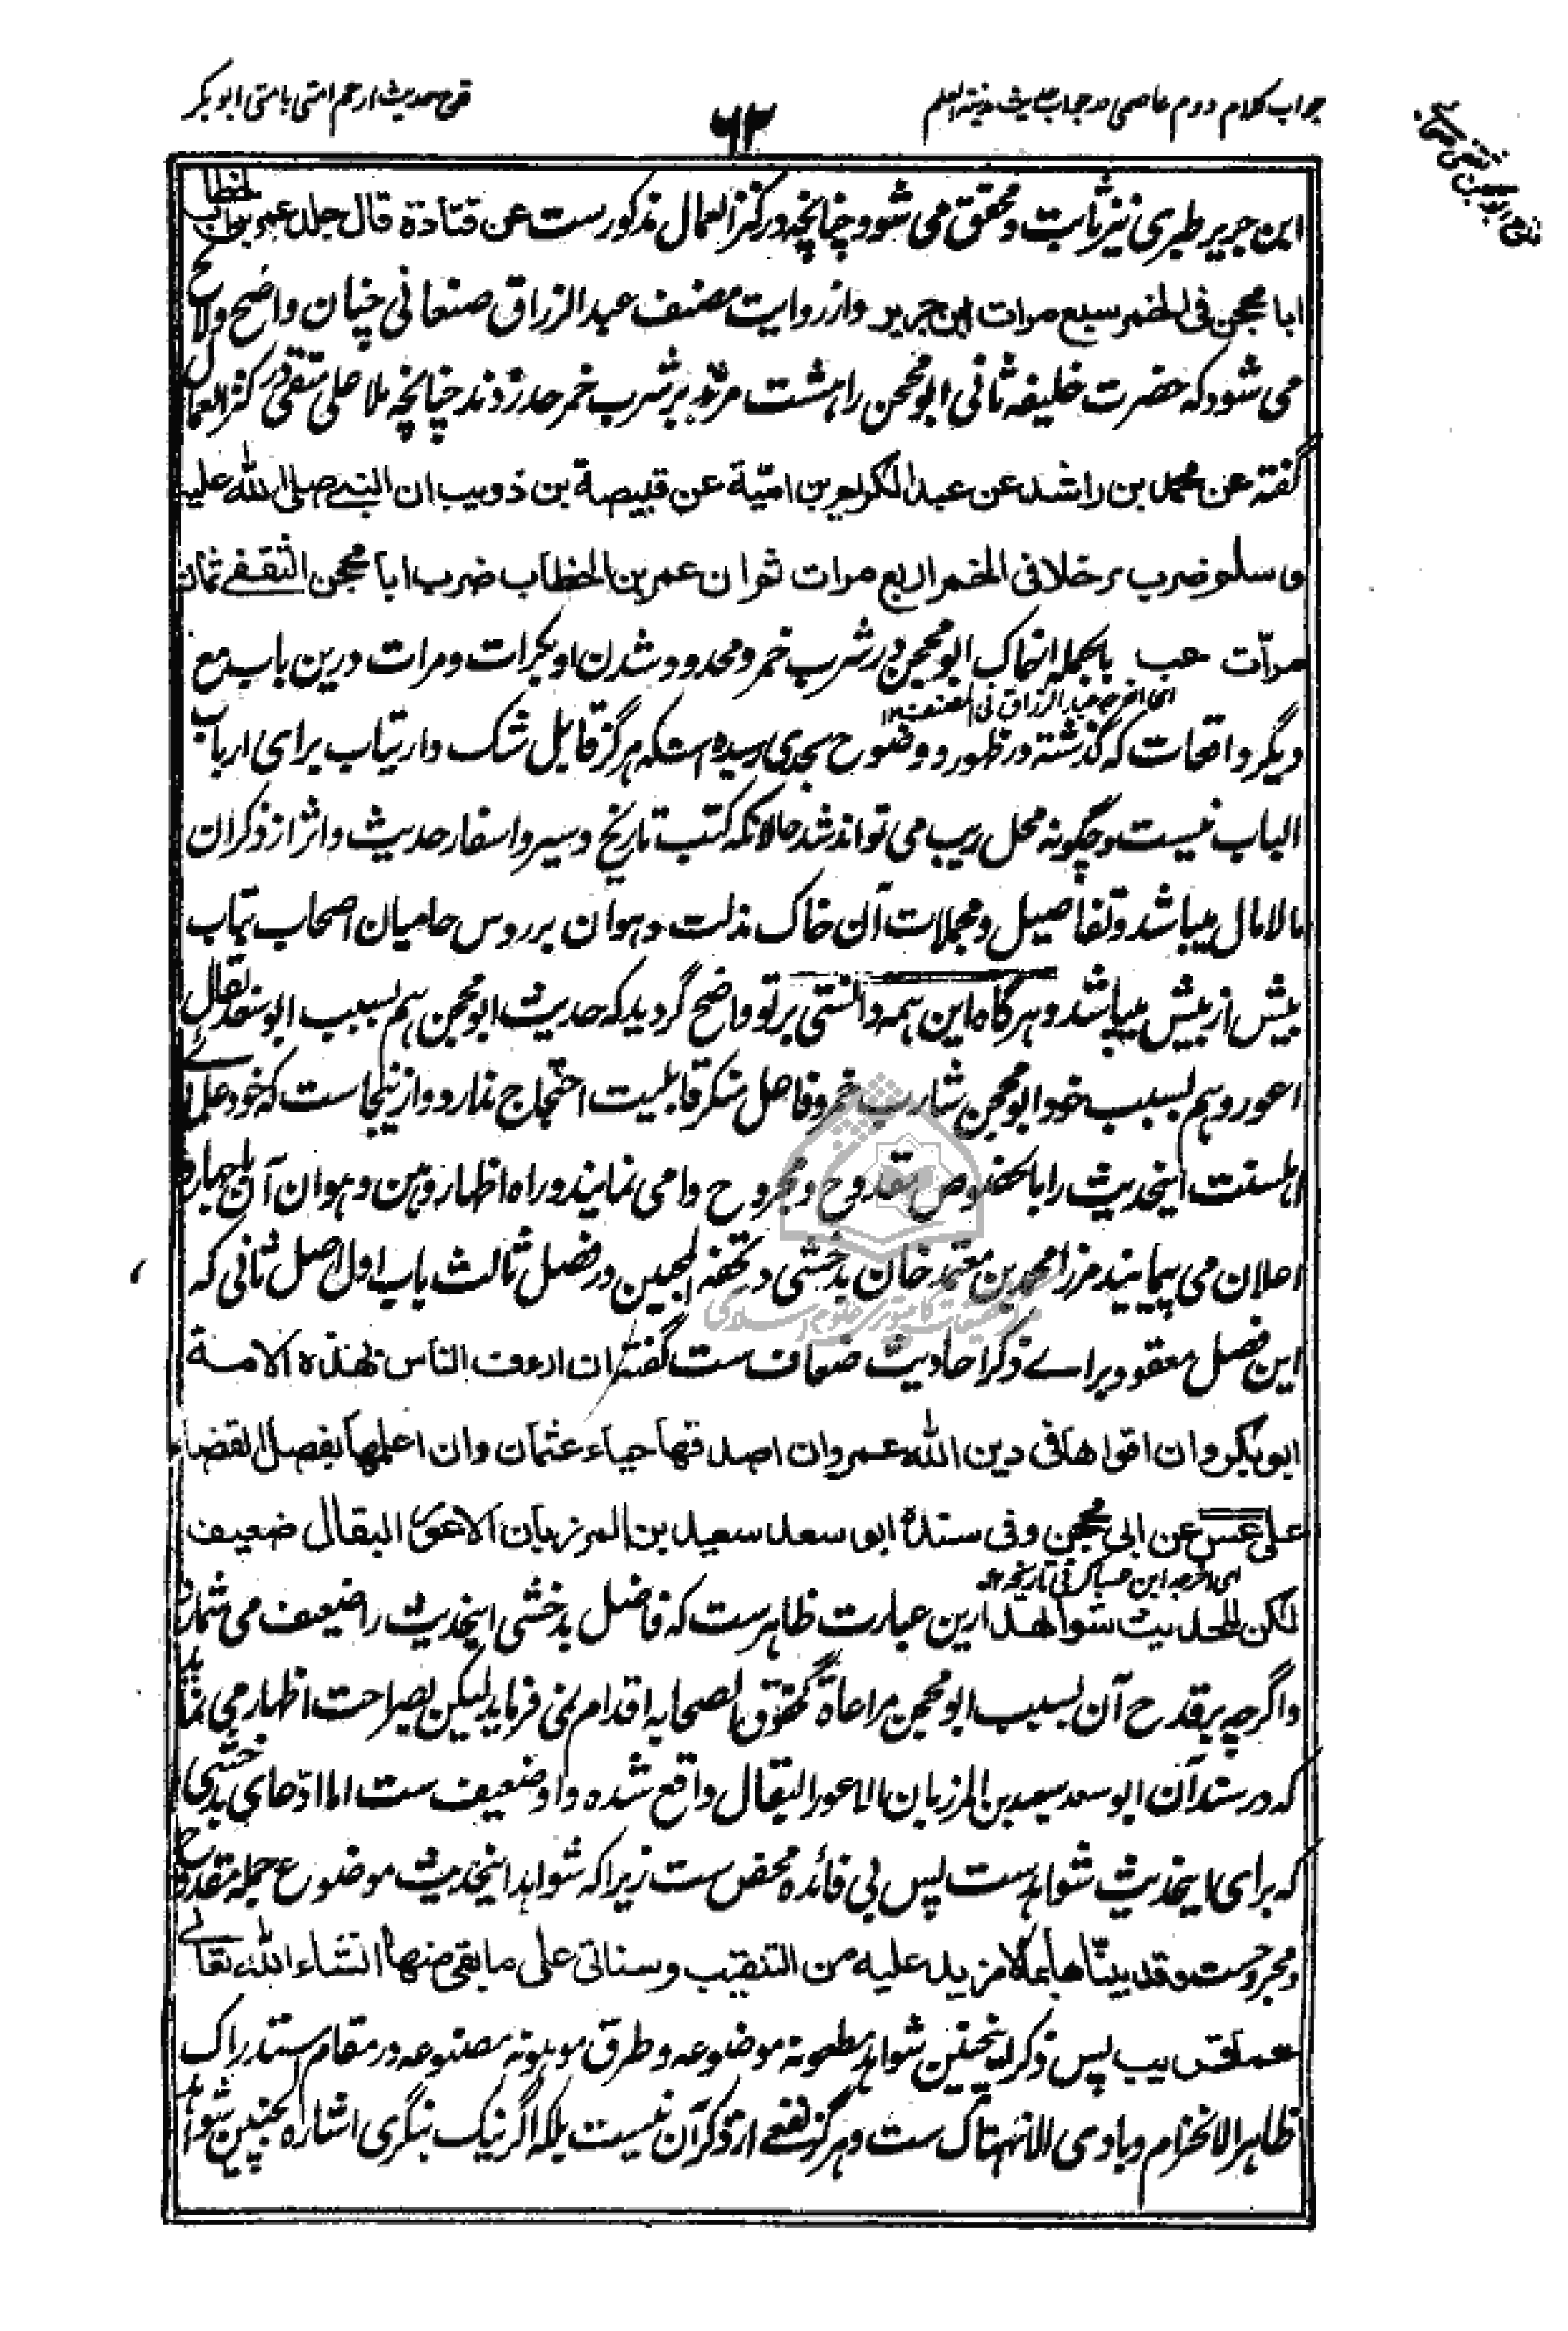 جواب کلام دوم عاصمی در جواب حدیث مدینة العلم
۶۲
قدح حدیث ارحم امتی بامتی ابوبکر
ابن جریر طبری نیز ثابت و محقق می شود چنانچه در کنز العمال مذکورست عن قتادة قال جلد عمر بن الخطاب
ابا محجن فی الخمر سبع مرات ابن جریر واز روایت مصنف عبد الرزاق صنعانی چنان واضح و لائح
می شود که حضرت خلیفه ثانی ابو محجن را هشت مرتبه بر شرب خمر حد زدند چنانچه ملا علی متقی در کنز العمال
گفته عن محمد بن راشد عن عبد الکریم بن امیّة عن قبیصة بن ذویب ان النبی صلی الله علیه
و سلم ضرب رجلا فی الخمر اربع مرات ثم ان عمر بن الخطاب ضرب ابا محجن الثقفی ثمان
مرّات عب بالجمله انهماک ابو محجن در شرب خمر و محدود شدن او بکرات و مرات درین باب مع
ای اخرجه عبد الرزاق فی المصنف ۱۲
دیگر واقعات که گذشته در ظهور و وضوح بحدی رسیده است که هرگز قابل شک و ارتیاب برای ارباب
الباب نیست و چگونه محل ریب می تواند شد حالانکه کتب تاریخ و سیر و اسفار حدیث و اثر از ذکر آن
مالامال میباشد و تفاصیل و مجملات آن خاک مذلت و هوان بر رؤس حامیان اصحاب تباب
بیش از بیش میپاشد و هرگاه این همه دانستی بر تو واضح گردید که حدیث ابو محجن هم بسبب ابو سعد بقال
اعور و هم بسبب خود ابو محجن شارب خمر و فاعل منکر قابلیت احتجاج ندارد و ازینجاست که خود علمای
اهلسنت اینحدیث را بالخصوص مقدوح و مجروح وا می نمایند و راه اظهار وهن و هوان آن باجهار و
اعلان می پیمایند مرزا محمد بن معتمد خان بدخشی در تحفه المحبین در فصل ثالث باب اول اصل ثانی که
این فصل معقود برای ذکر احادیث ضعاف ست گفته ان ارءف الناس بهذه الامة
ابو بکر و ان اقواها فی دین الله عمر و ان اصدقها حیاء عثمان و ان اعلمها بفصل القضاء
علی عس عن ابی محجن و فی سنده ابو سعد سعید بن المرزبان الاعور البقال ضعیف
ای اخرجه ابن عساکر فی تاریخه ۱۲
لکن للحدیث شواهد ازین عبارت ظاهر ست که فاضل بدخشی اینحدیث را ضعیف می شمارد
و اگرچه بر قدح آن بسبب ابو محجن مراعاة لحقوق الصحابه اقدام نمی فرماید لیکن بصراحت اظهار می نماید
که در سند آن ابو سعد سعید بن المرزبان الاعور البقال واقع شده و او ضعیف ست اما ادّعای بدخشی
که برای اینحدیث شواهدست پس بی فائده محض ست زیرا که شواهد اینحدیث موضوع جمله مقدوح
و مجروحست و قد بینّاها بما لا مزید علیه من التنقیب و سناتی علی ما بقی منها انشاء الله تعالی
عماقریب پس ذکر اینچنین شواهد مطعونه موضوعه و طرق موهونه مصنوعه در مقام استدراک
ظاهر الانخرام و بادی الانهتاک ست و هرگز نفعی از ذکر آن نیست بلکه اگر نیک بنگری اشاره بچنین شواهد